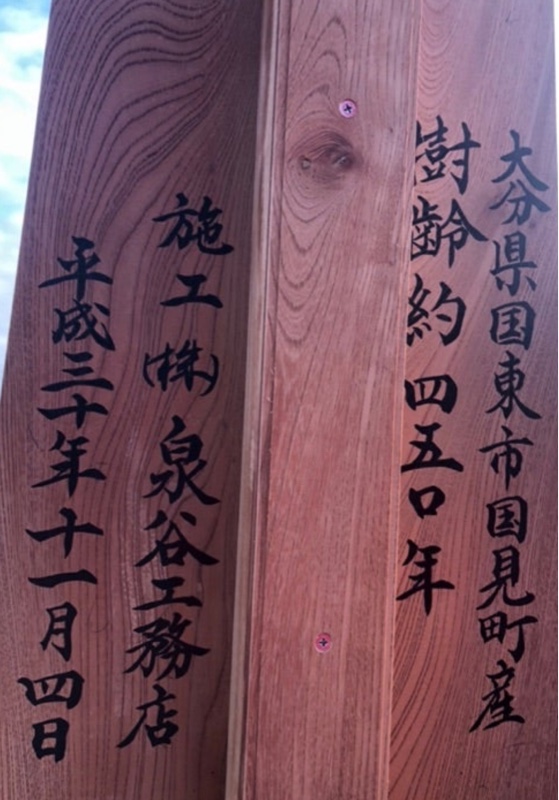 大分県国東市国見町産
樹齢約四五〇年
施工(株)泉谷工務店
平成三十年十一月四日